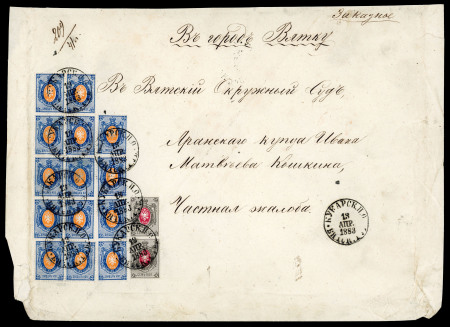 Заказное
№ 608
Въ городъ Вятку
Въ Вятскій Окружный Судъ,
Яранскаго купца Ивана
Матвѣева Кошкина,
Частная жалоба.
КУКАРСК. П. О.
13
АПР.
1883
ВЯТСК.